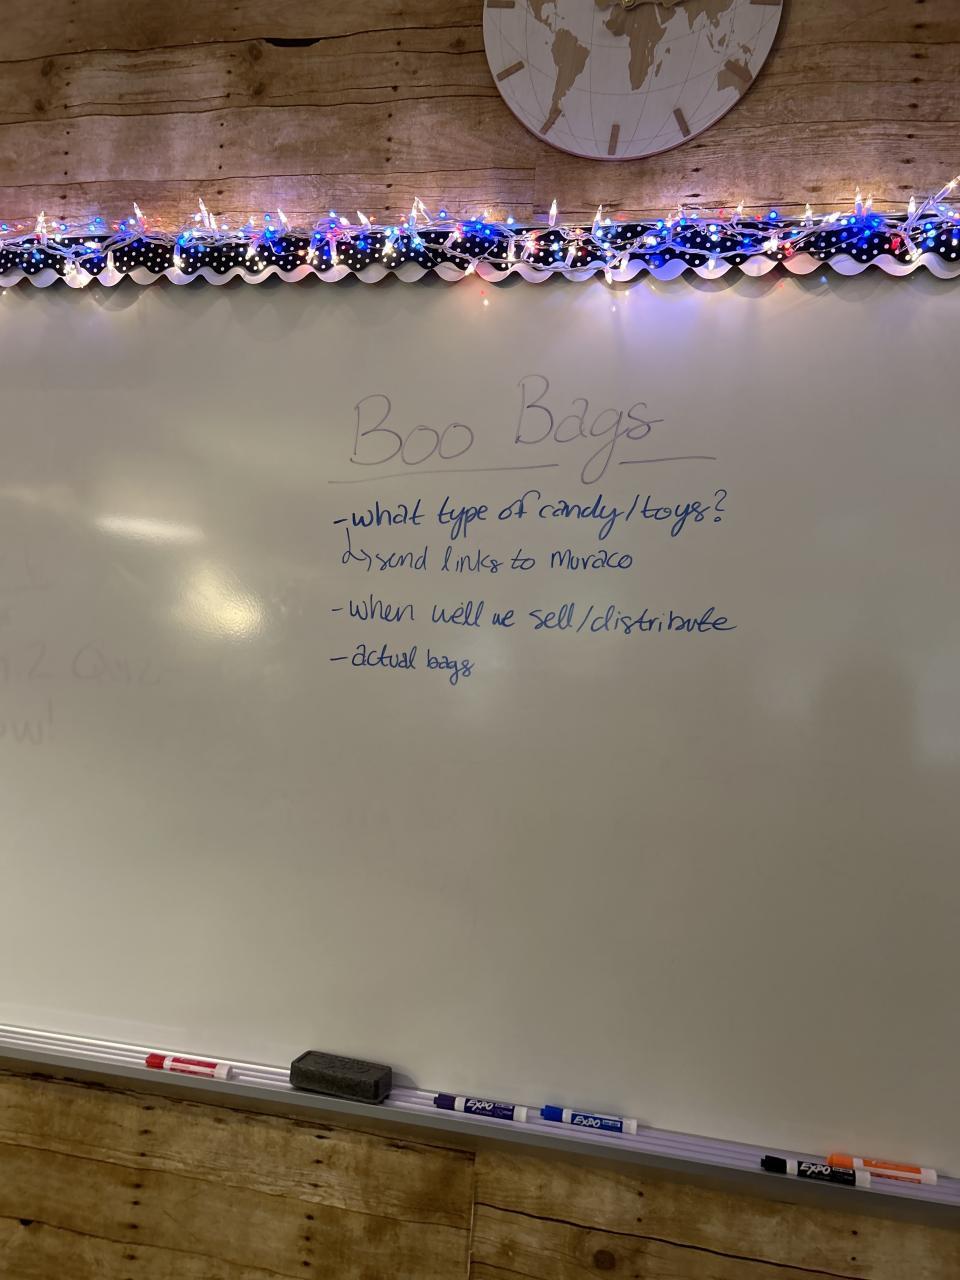 Boo Bags
- what type of candy/toys?
↳ send links to Muraco
- when will we sell/distribute
- actual bags
.2 Quiz
ow!
EXPO
EXPO
EXPO